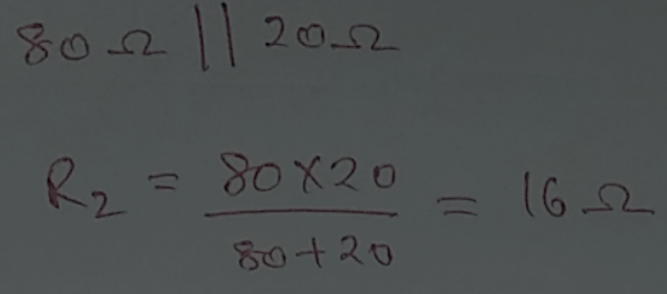 80Ω || 20Ω
R₂ = 80×20 / 80+20 = 16Ω